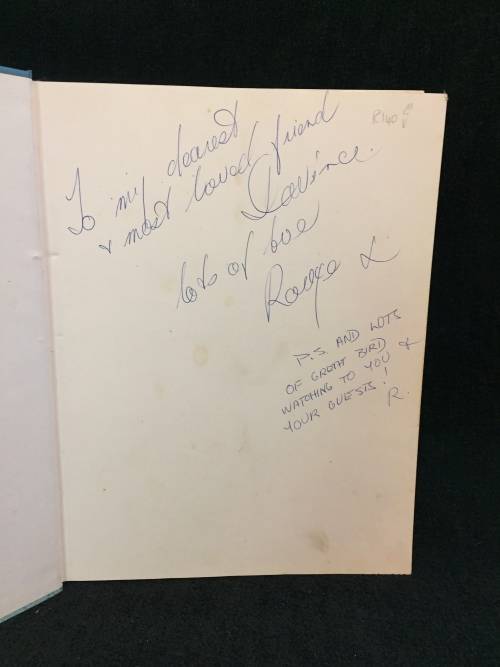 To my dearest
& most loved friend
Lavinee.
lots of love
L
P.S. AND LOTS
OF GREAT BIRD
WATCHING TO YOU &
YOUR GUESTS!
R.
R140